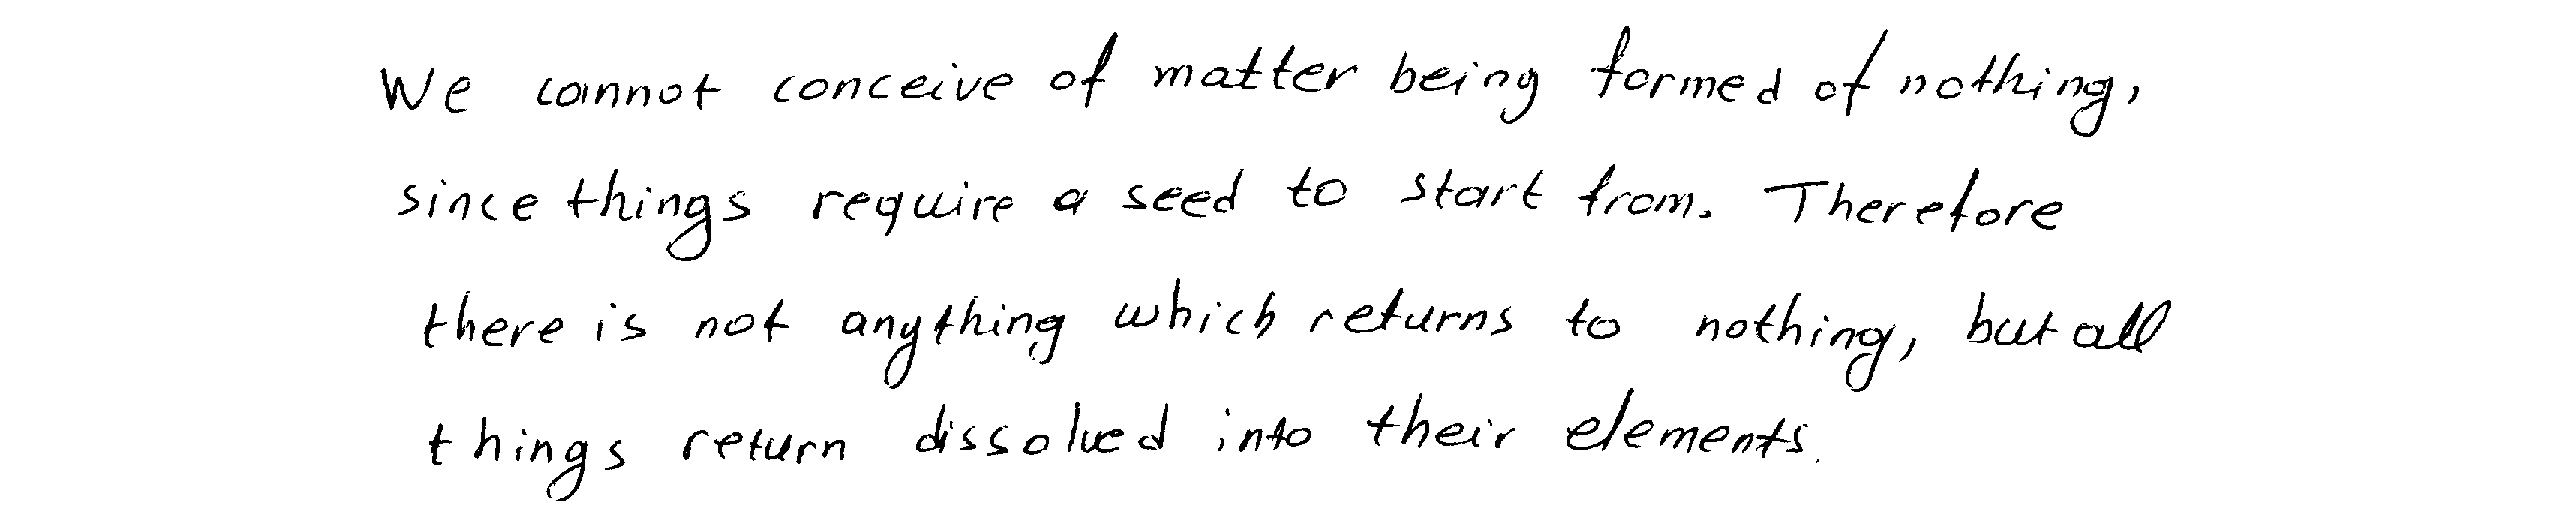 We cannot conceive of matter being formed of nothing,
since things require a seed to start from. Therefore
there is not anything which returns to nothing, but all
things return dissolved into their elements.